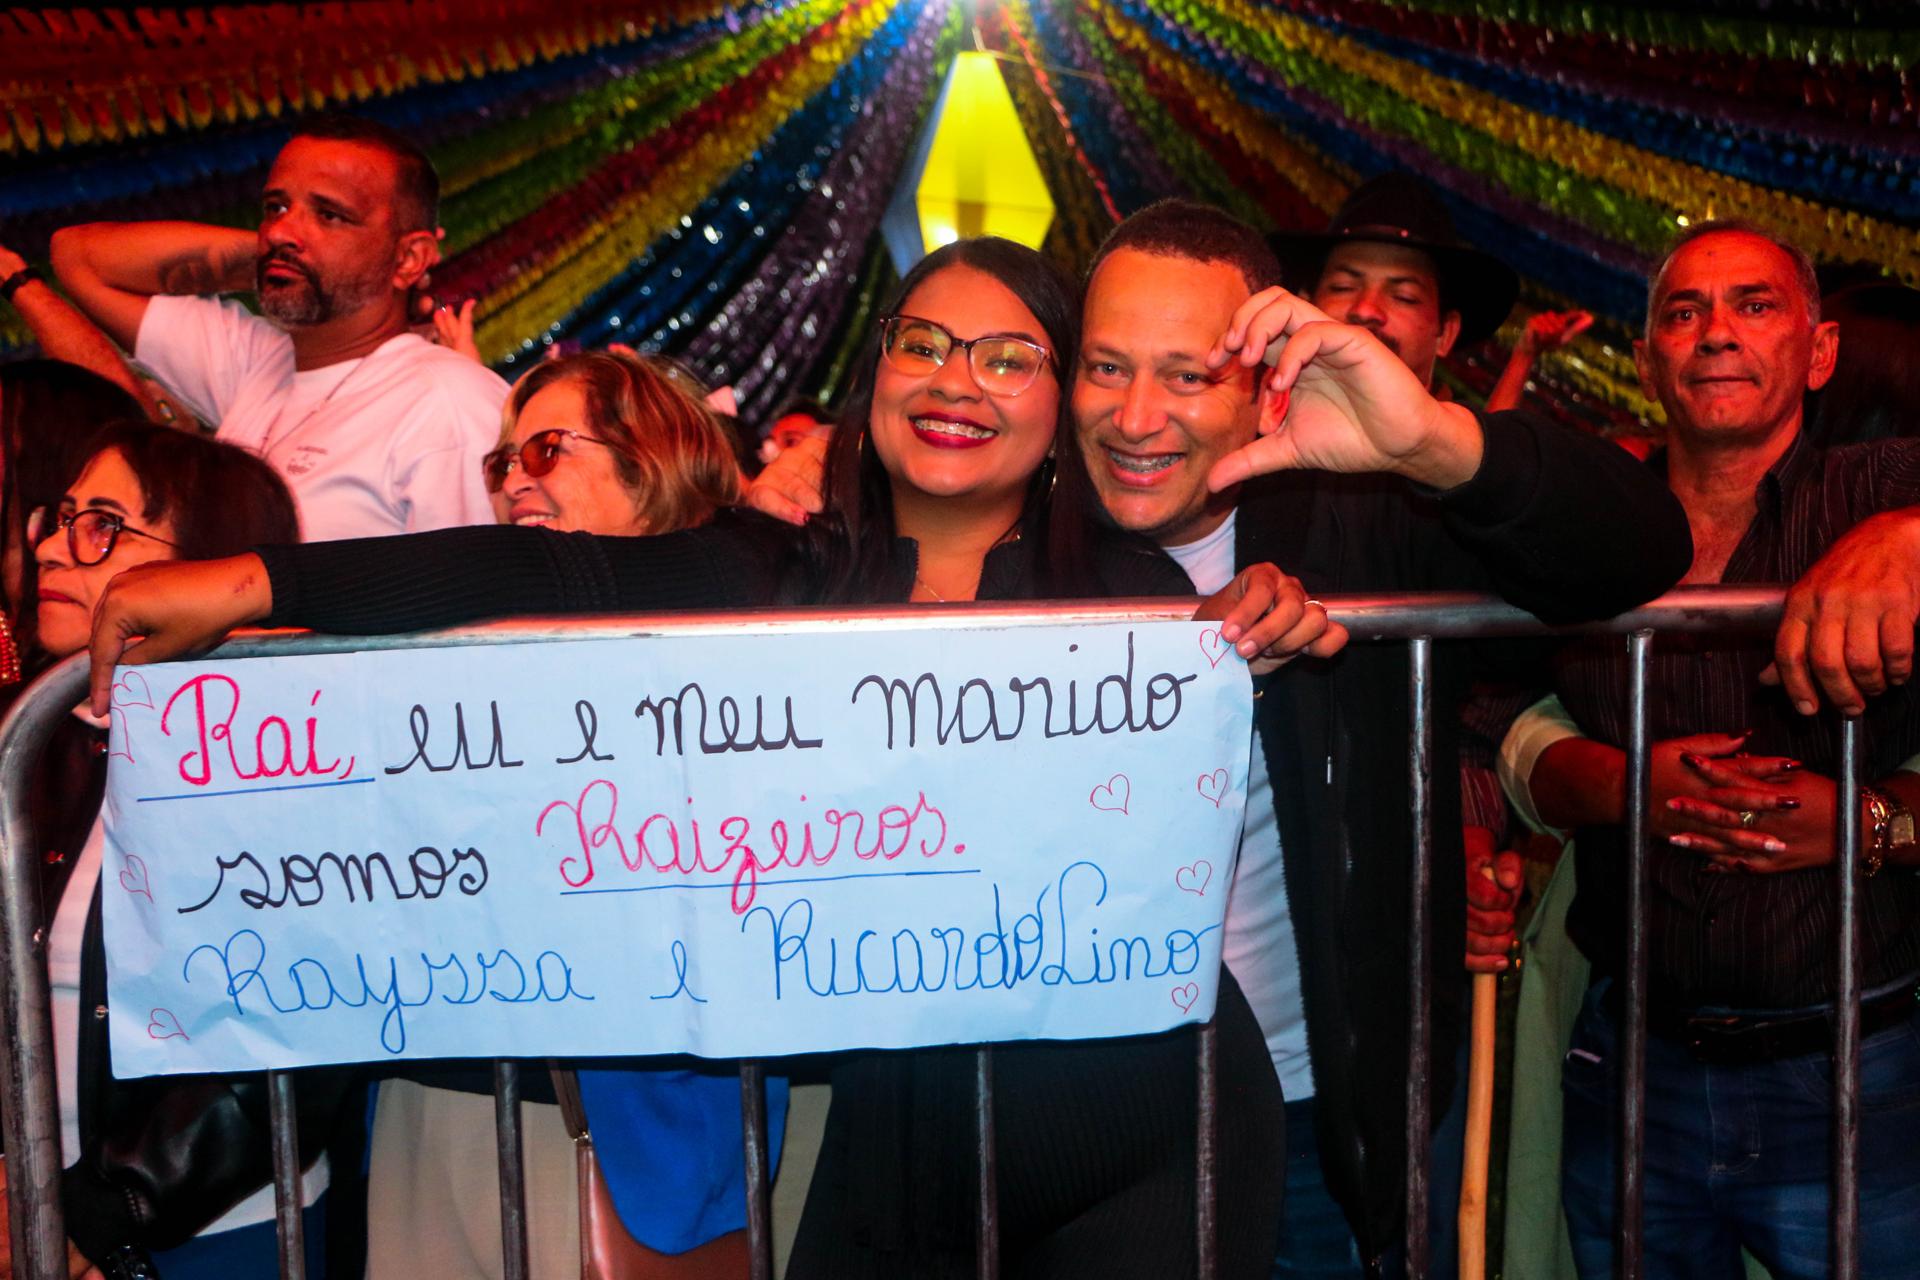 Raí, eu e meu marido
somos Raizeiros.
Rayssa e Ricardo Lino